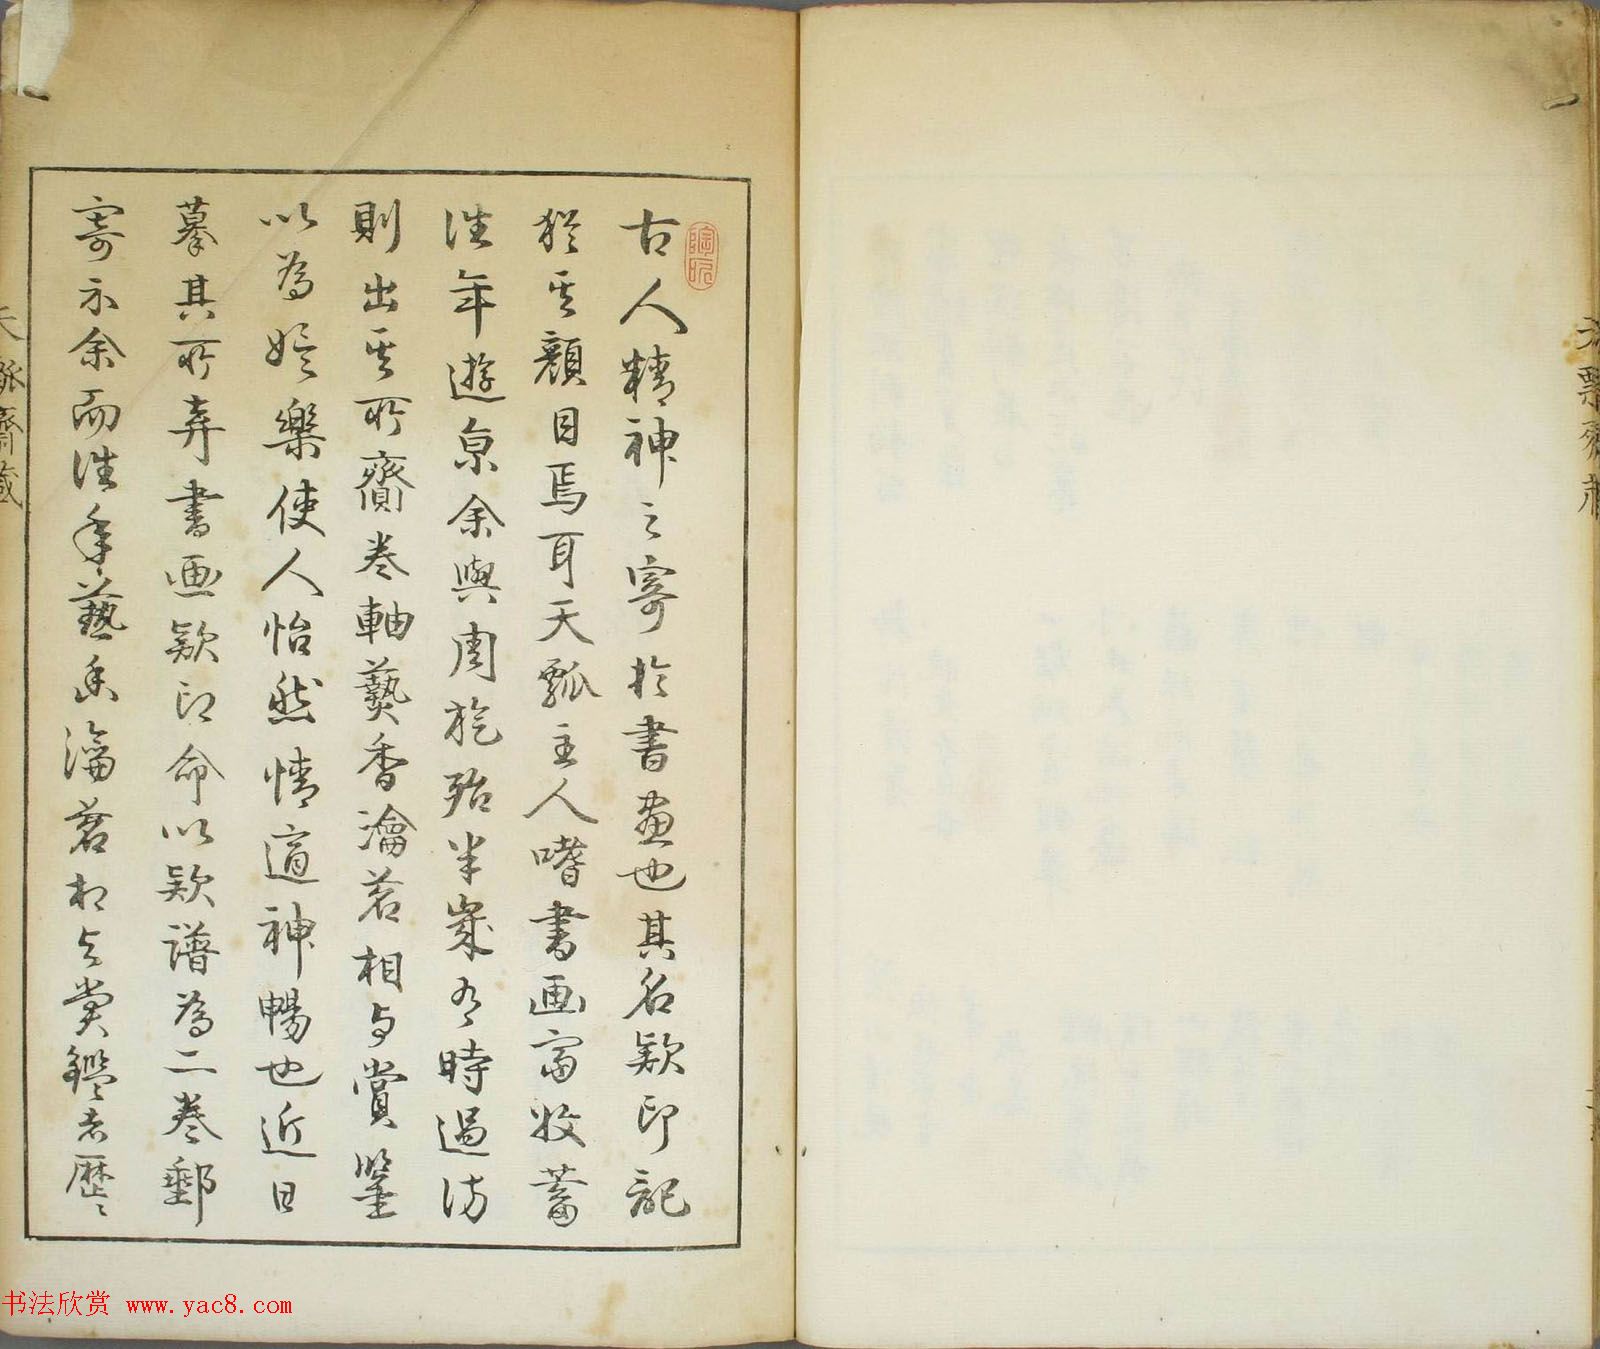 古人精神之寄於書畫也其名欵印記
猶其顔目焉耳天瓢主人嗜書画富收蓄
往年遊京余與周旋殆半歲有時過訪
則出其所齎卷軸爇香瀹茗相与賞鑒
以為娯樂使人怡然情適神暢也近日
摹其所弆書画欵印命以欵譜為二卷郵
寄示余而往年爇香瀹茗相与賞鑑者歷〻
天瓢齋藏
书法欣赏 www.yac8.com